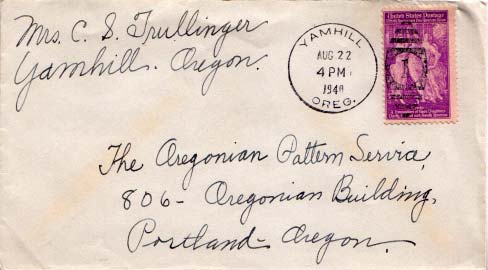 Mrs. C. S. Trullinger
Yamhill. Oregon.
YAMHILL
AUG 22
4 PM
1940
OREG.
United States Postage
1
The Oregonian Pattern Service,
806- Oregonian Building,
Portland- Oregon.